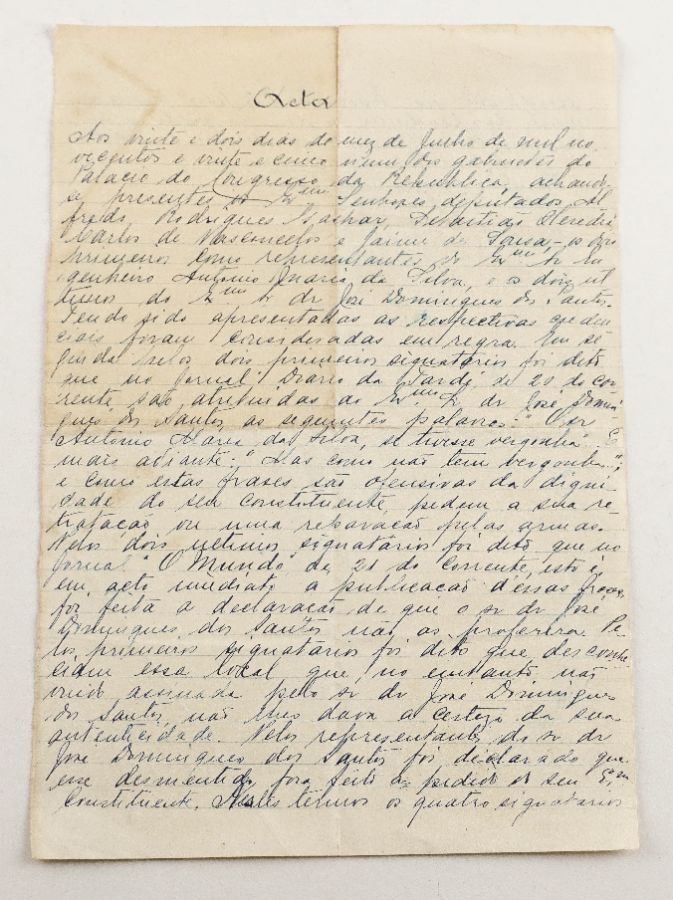 Acta
Aos vinte e dois dias do mez de Junho de mil no-
vecentos e vinte e cinco n'um dos gabinetes do
Palacio do Congresso da Republica, achando-
se presentes os Ex.mos Senhores deputados Al-
fredo Rodrigues Gaspar, Sebastião Heredia,
Carlos de Vasconcelos e Jaime de Sousa, os dois
primeiros como representantes do Ex.mo Sr En-
genheiro Antonio Maria da Silva, e os dois ul-
timos do Ex.mo Sr dr José Domingues dos Santos.
Tendo sido apresentadas as respectivas creden-
ciais foram consideradas em regra. Em se-
guida pelos dois primeiros signatários foi dito
que no Jornal "Diario da Tarde" de 20 do cor-
rente são atribuidas ao Ex.mo Sr dr José Domin-
gues dos Santos as seguintes palavras: "O sr
António Maria da Silva, se tivesse vergonha". E
mais adiante: "Mas como não tem vergonha...";
e como estas frases são ofensivas da digni-
dade do seu constituinte, pedem a sua re-
tratação ou uma reparação pelas armas.
Pelos dois ultimos signatários foi dito que no
Jornal "O Mundo" de 21 do corrente, isto é,
em acto imediato a publicação d'essas frases,
foi feita a declaração de que o sr dr José
Domingues dos Santos não as proferira. Pe-
los primeiros signatários foi dito que desconhe-
ciam essa local que, no entanto não
vindo assinada pelo sr dr José Domingues
dos Santos, não lhes dava a certeza da sua
autenticidade. Pelos representantes do sr dr
José Domingues dos Santos foi declarado que
esse desmentido fora feito a pedido do seu Ex.mo
Constituinte. Nestes termos os quatro signatarios